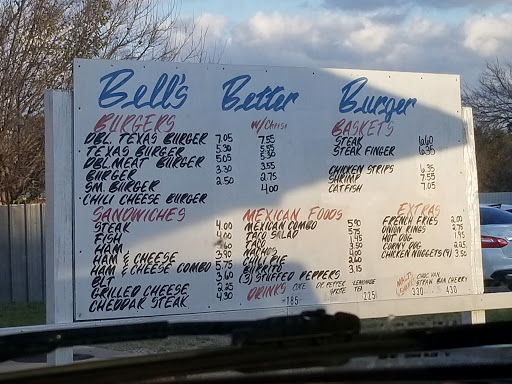 Bell's Better Burger
BURGERS w/Cheese
DBL. TEXAS BURGER 7.05 7.55
TEXAS BURGER 5.30 5.55
DBL. MEAT BURGER 5.05 5.30
BURGER 3.30 3.55
SM. BURGER 2.50 2.75
CHILI CHEESE BURGER 4.00
BASKETS
STEAK
STEAK FINGER
CHICKEN STRIPS 6.35
SHRIMP 7.55
CATFISH 7.05
SANDWICHES
STEAK 4.00
FISH
HAM
HAM & CHEESE 3.90
HAM & CHEESE COMBO 5.75
BLT 3.60
GRILLED CHEESE 2.25
CHEDDAR STEAK 4.30
MEXICAN FOODS
MEXICAN COMBO 5.90
TACO SALAD 5.75
TACO 1.95
NACHOS 3.50
CHILI PIE 4.00
BURRITO 2.60
(3) STUFFED PEPPERS 3.15
EXTRAS
FRENCH FRIES 2.00
ONION RINGS 2.75
HOT DOG 1.95
CORNY DOG 2.25
CHICKEN NUGGETS (9) 3.50
DRINKS COKE DR PEPPER LEMONADE
SPRITE TEA
185 225
MALTS CHOC VAN
STRAW BAN CHERRY
330 430